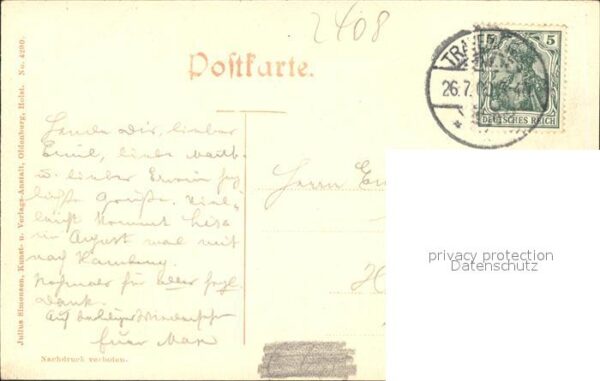 2408
Postkarte.
TRAVE
26.7.06
5
DEUTSCHES REICH
Julius Simonsen, Kunst- u. Verlags-Anstalt, Oldenburg, Holst. No. 4280.
Sende Dir, lieber
Emil, liebe
u. lieber Erwin
Grüße. Viel-
leicht kommt
im August mal mit
nach Hamburg.
Nochmals für alles
Dank.
Auf
Euer Max
Herrn
H
privacy protection
Datenschutz
Nachdruck verboten.